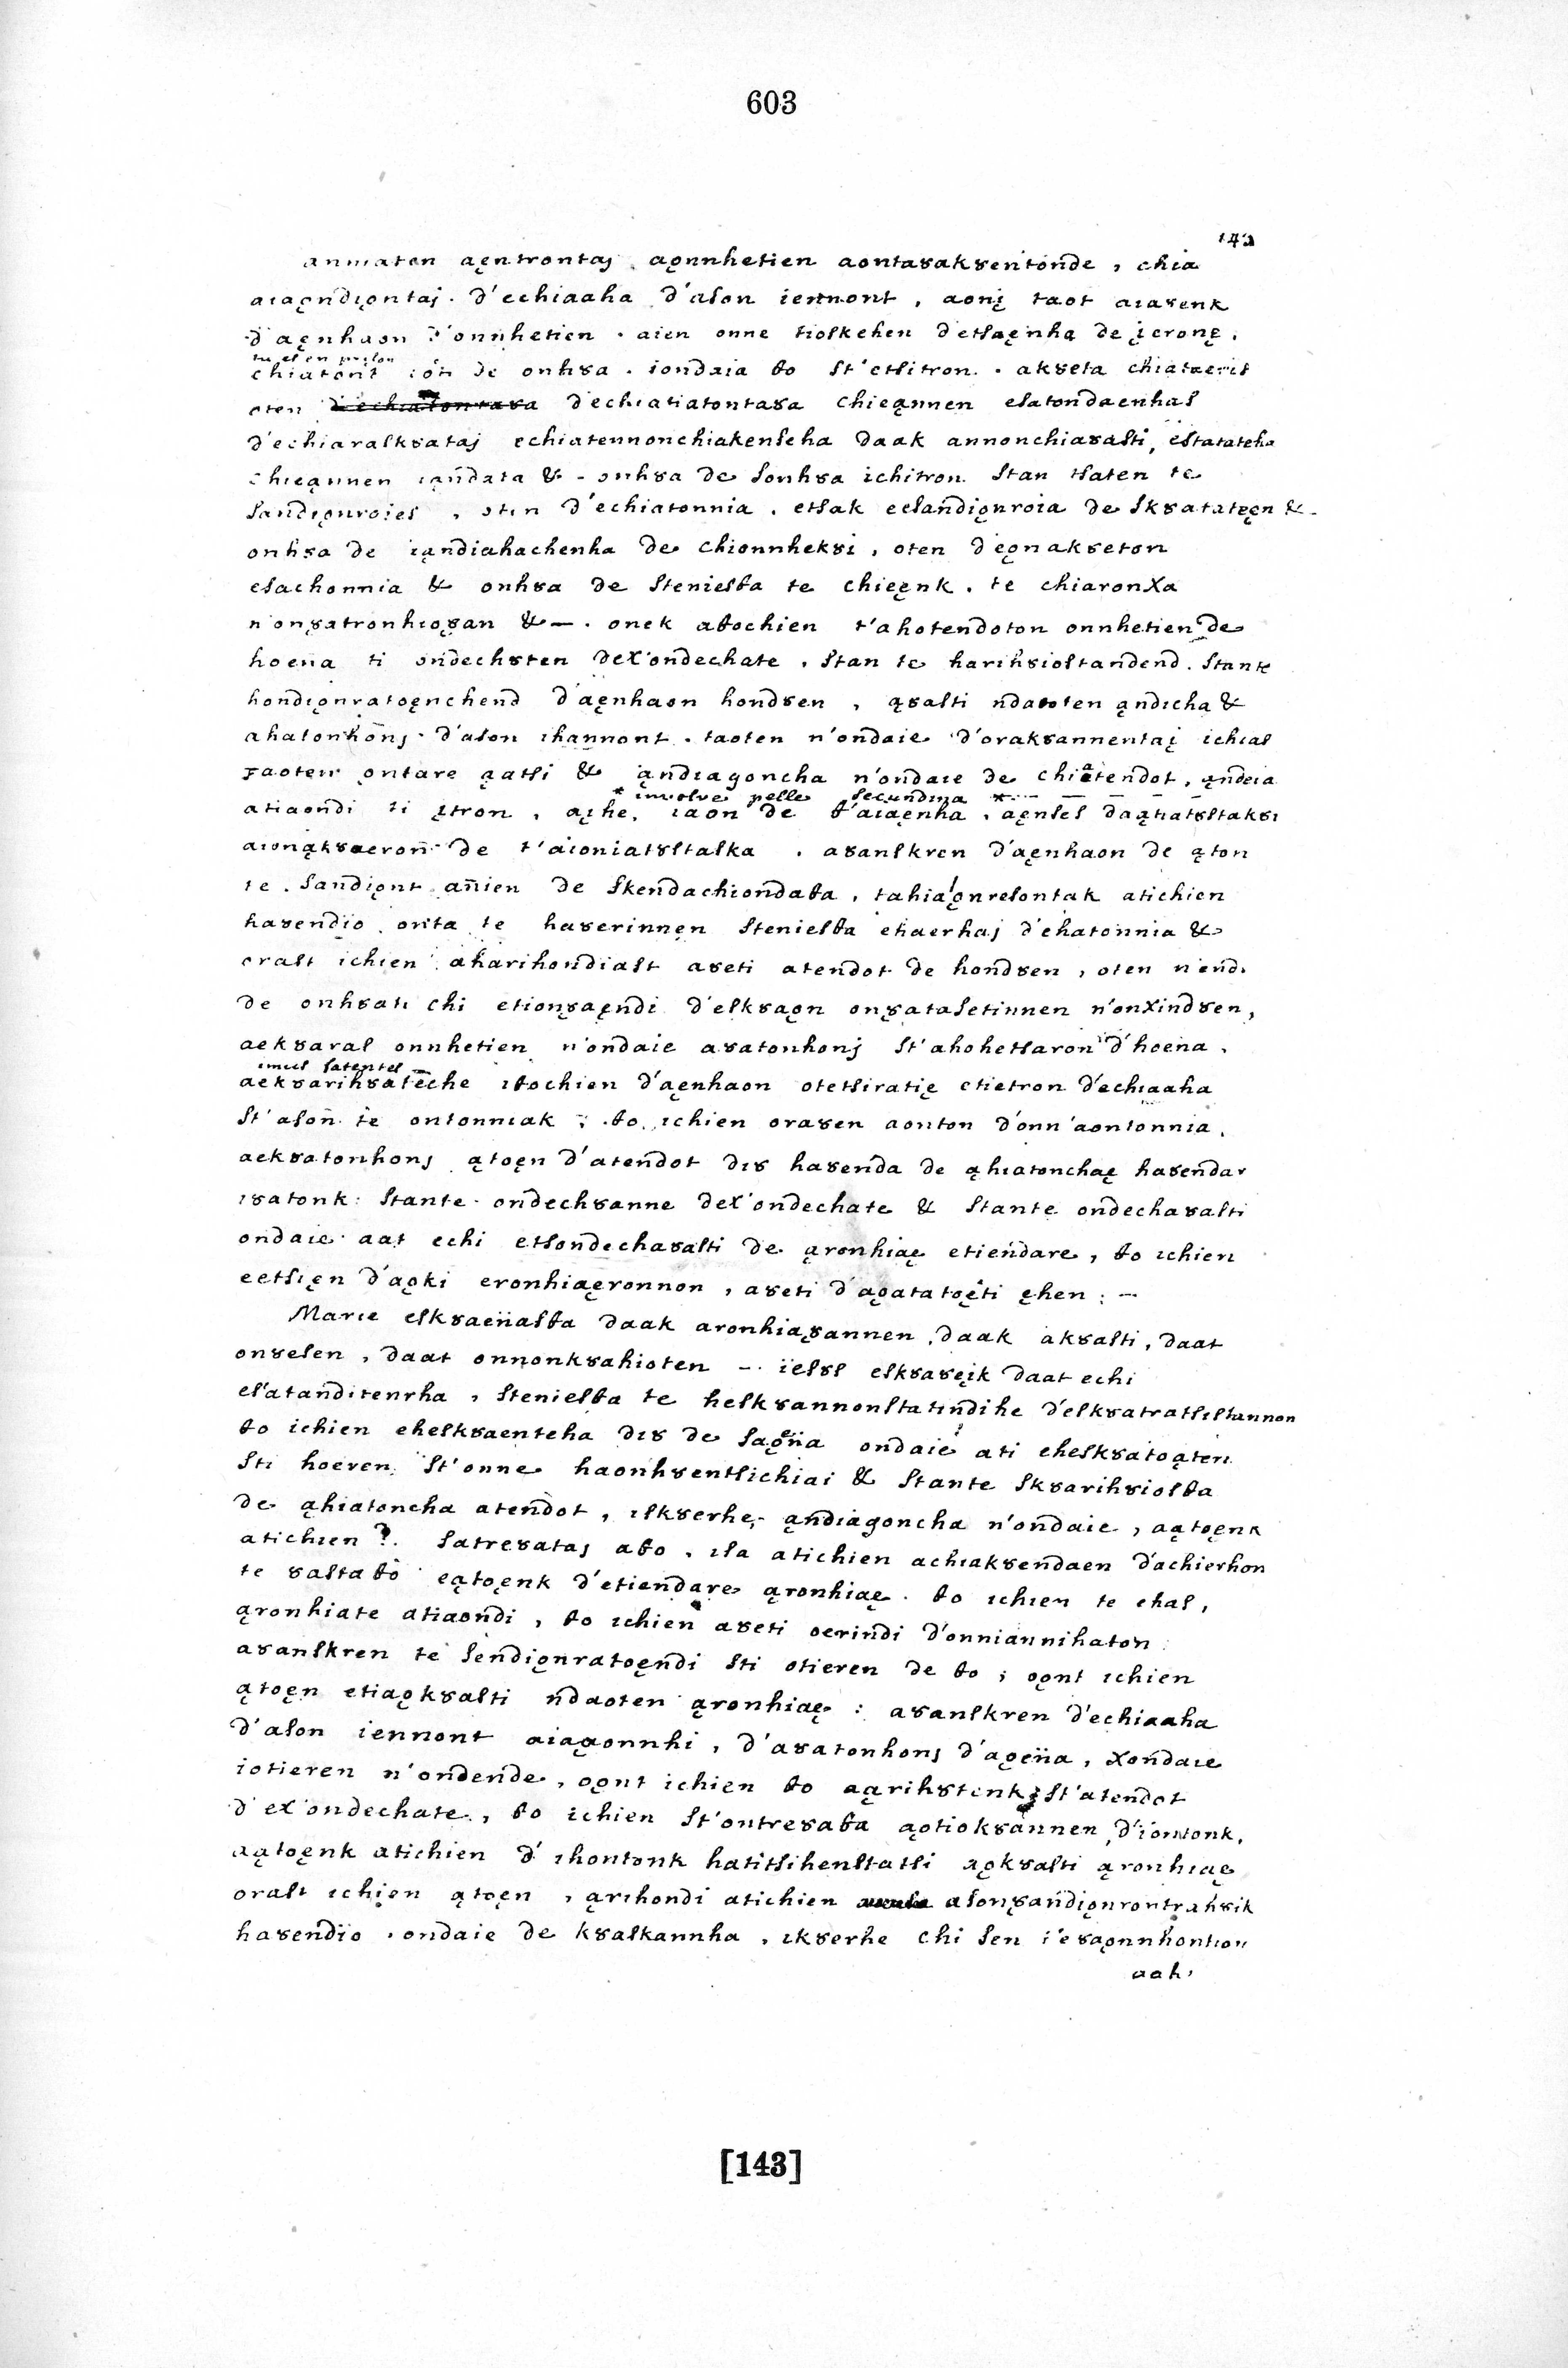 603
143
anniaten aęntrontaj aǫnnhetien aontaȣakȣentonde, chia
aiaǫndiǫntaj. d'echiaaha d'ason iennont, aonį taot aiaȣenk
d'aęnhaon d'onnhetien. aien onne tioskehen detsaęnha de įeronę.
tu es en prison
chiatont ion de onhȣa. iondaia θo st'etsitron. akȣeta chiataeris
oten d'echiatiatontaȣa chieąnnen esatondaenhas
d'echiaraskȣataj echiatennonchiakenscha daak annonchiaȣasti, estatateha
chieąnnen iąndata & - onhȣa de sonhȣa ichitron stan tsaten te
sandiǫnroies, oten d'echiatonnia. etsak eesandiǫnroia de skȣatatęn & -
onhȣa de iąndiahachenha de chionnhekȣi, oten d'eǫnakȣeton
esachonnia & onhȣa de stniesθa te chieęnk. te chiaronxa
n'onȣatronhioȣan & —. onek aθochien t'ahotendoton onnhetien de
hoena ti ondechȣten dex'ondechate. stan te harihȣiostandend. stante
hondiǫnratoęnchend d'aęnhaon hondȣen, ąȣasti ndaoten ąndicha &
ahatonhonj. d'ason ihannont. taoten n'ondaie d'orakȣannentaį ichias
taoten ontare ąatsi & ąndiagoncha n'ondaie de chiatendot, ąndeia
* involve pelle secundina *
atiaondi ti įtron, aįhe, iaon de θ'aiaęnha, aęnses daąiatȣstakȣi
aionąkȣaeron de t'aioniatȣstaska. aȣanskren d'aęnhaon de ąton
te. sandiǫnt annien de skendachiondaθa, tahiaǫnresontak atichien
haȣendio onta te haȣerinnen steniesθa ehaerhaj d'ehatonnia &
orast ichien aharihondiast aȣeti atendot de hondȣen, oten n'endi
de onhȣati chi etionȣaęndi d'eskȣaǫn onȣatasetinnen n'onxindȣen,
aekȣaras onnhetien n'ondaie aȣatonhonj st'ahohetsaron d'hoena.
imus latentes
aekȣarihȣateche iθochien d'aęnhaon otetsiratię etietron d'echiaaha
st'ason te ontonniak; θo ichien oraȣen aonton d'onn'aontonnia.
aekȣatonhonj ątoęn d'atendot diȣ haȣenda de ąhiatonchaę haȣendar
iȣatonk: stante ondechȣanne dex'ondechate & stante ondechaȣasti
ondaie aat echi etsondechaȣasti de ąronhiaę etiendare, θo ichien
eetsięn d'aǫki eronhiaęronnon, aȣeti d'aǫatatoęti ęhen: —
Marie eskȣaennasθa daak aronhiaȣannen, daak akȣasti, daat
onȣesen, daat onnonkȣahioten —. iesȣs eskȣaȣęik daat echi
es'atanditenrha, steniesθa te heskȣannonstatindihe d'eskȣatratsistannon
θo ichien eheskȣaenteha diȣ de saǫena ondaie ati eheskȣatoąten
sti hoeren. st'onne haonhȣentsichiai & stante skȣarihȣiosθa
de ąhiatoncha atendot, iskȣerhe, ąndiagoncha n'ondaie, aątoęnk
atichien? satreȣataj aθo, isa atichien achiakȣendaen d'achierhon
te ȣasta θo eątoęnk d'etiendare ąronhiaę. θo ichien te ehas,
ąronhiate atiaondi, θo ichien aȣeti oerindi d'onniannihaton
aȣanskren te sendiǫnratoęndi sti otieren de θo; oǫnt ichien
ątoęn etiaǫkȣasti ndaoten ąronhiaę: aȣanskren d'echiaaha
d'ason iennont aiaąonnhi, d'aȣatonhonj d'aǫena, xondaie
iotieren n'ondende, oǫnt ichien θo aąrihȣtenk; st'atendot
d'ex'ondechate, θo ichien st'ontreȣaθa ąotiokȣannen, d'iontonk.
aątoęnk atichien d'ihontonk hatitsihenstatsi aǫkȣasti ąronhiaę
orast ichien ątoęn, ąrihondi atichien asonȣandiǫnrontrahȣik
haȣendio. ondaie de kȣaskannha, ikȣerhe chi sen i'eȣaǫnnhontion
aah,
[143]